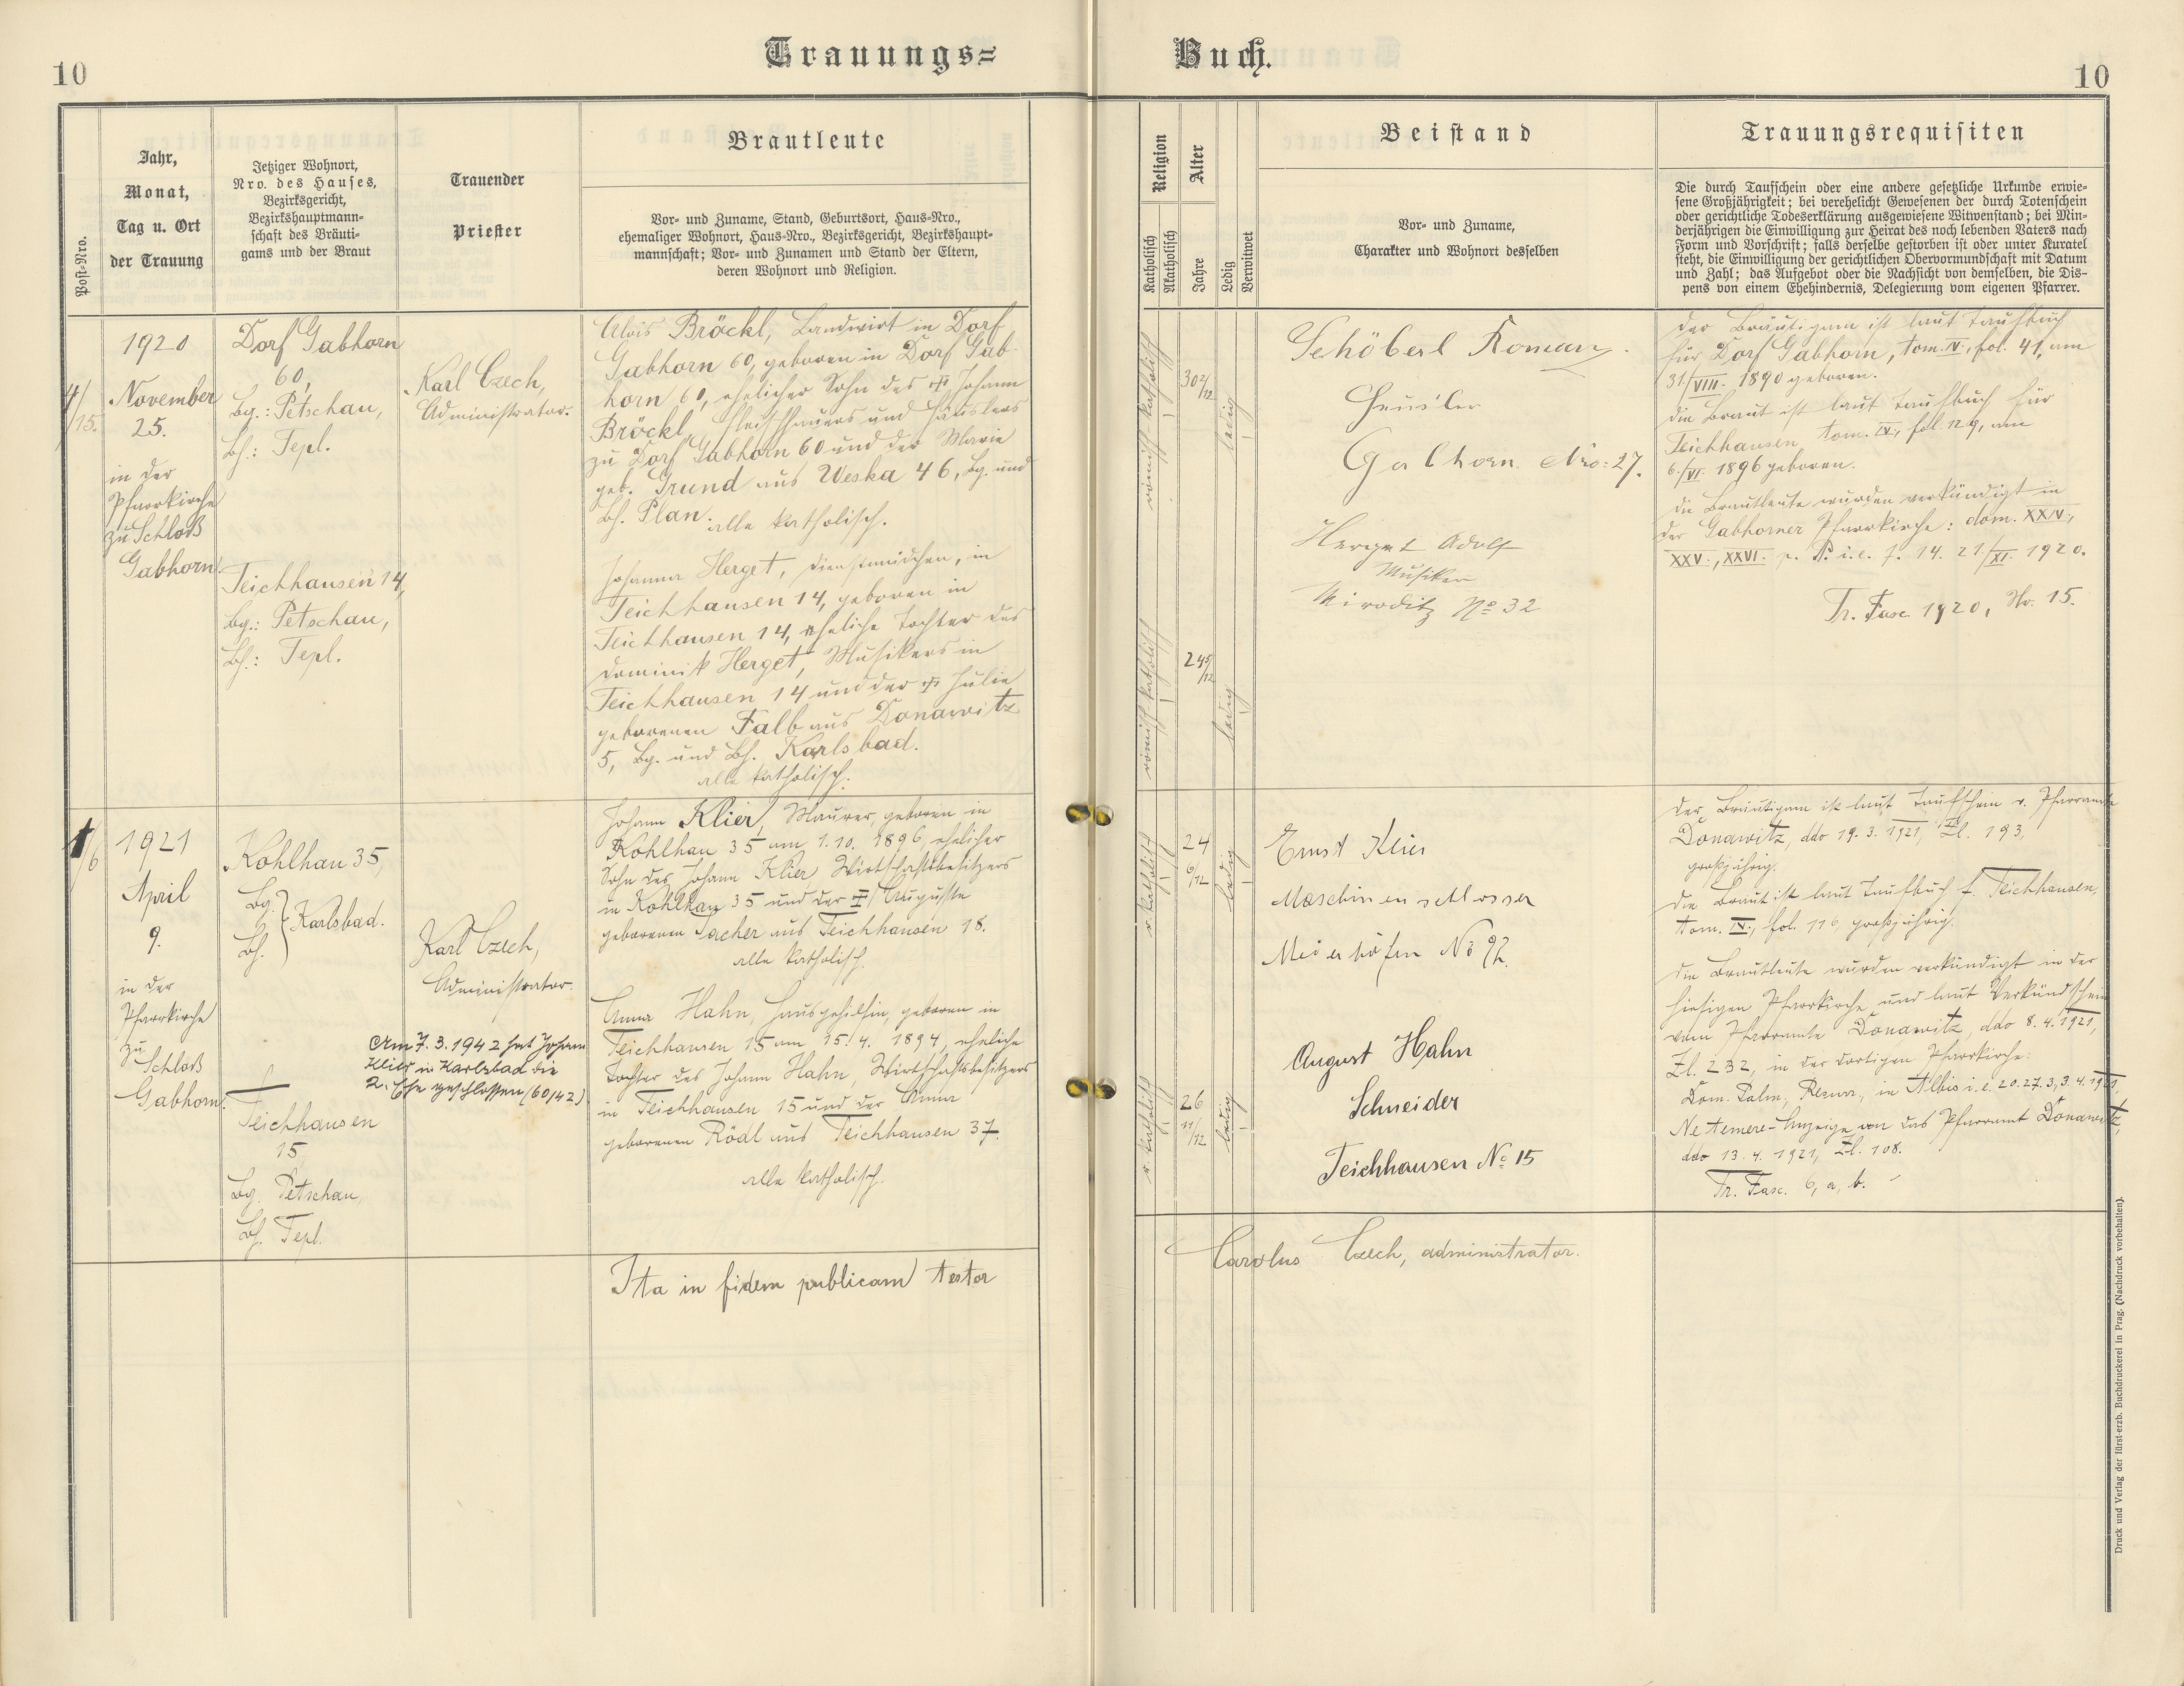 10
Trauungs=
Buch.
10
Post-Nro.
Jahr,
Monat,
Tag u. Ort
der Trauung
Jetziger Wohnort,
Nro. des Hauses,
Bezirksgericht,
Bezirkshauptmann-
schaft des Bräuti-
gams und der Braut
Trauender
Priester
Brautleute
Vor- und Zuname, Stand, Geburtsort, Haus-Nro.,
ehemaliger Wohnort, Haus-Nro., Bezirksgericht, Bezirkshaupt-
mannschaft; Vor- und Zunamen und Stand der Eltern,
deren Wohnort und Religion.
Religion
Katholisch
Akatholisch
Alter
Jahre
Ledig
Verwitwet
Beistand
Vor- und Zuname,
Charakter und Wohnort desselben
Trauungsrequisiten
Die durch Taufschein oder eine andere gesetzliche Urkunde erwie-
sene Großjährigkeit; bei verehelicht Gewesenen der durch Totenschein
oder gerichtliche Todeserklärung ausgewiesene Witwenstand; bei Min-
derjährigen die Einwilligung zur Heirat des noch lebenden Vaters nach
Form und Vorschrift; falls derselbe gestorben ist oder unter Kuratel
steht, die Einwilligung der gerichtlichen Obervormundschaft mit Datum
und Zahl; das Aufgebot oder die Nachsicht von demselben, die Dis-
pens von einem Ehehindernis, Delegierung vom eigenen Pfarrer.
4/15.
1920
November
25.
in der
Pfarrkirche
zu Schloß
Gabhorn.
Dorf Gabhorn
60,
Bg.: Petschau,
Bh.: Tepl.
Teichhausen 14,
Bg.: Petschau,
Bh.: Tepl.
Karl Czech,
Administrator.
Alois Bröckl, Landwirt in Dorf
Gabhorn 60, geboren in Dorf Gab-
horn 60, ehelicher Sohn des ✠ Johann
Bröckl, Fleischhauers und Häuslers
zu Dorf Gabhorn 60 und der Marie
geb. Grund aus Weska 46, Bg. und
Bh. Plan. alle katholisch.
Johanna Herget, Dienstmädchen, in
Teichhausen 14, geboren in
Teichhausen 14, eheliche Tochter des
Dominik Herget, Musikers in
Teichhausen 14 und der ✠ Julie
geborenen Falb aus Donawitz
5, Bg. und Bh. Karlsbad.
alle katholisch.
römisch-katholisch
30 2/12
ledig
römisch-katholisch
24 5/12
ledig
Schöberl Roman.
Häusler
Gabhorn Nro: 27.
Herget Adolf
Musiker
Miroditz No 32
Der Bräutigam ist laut Taufbuch
für Dorf Gabhorn, tom. IV., fol. 41, am
31./VIII. 1890 geboren.
Die Braut ist laut Taufbuch für
Teichhausen, tom. IV., fol. 129, am
6./VI. 1896 geboren.
Die Brautleute wurden verkündigt in
der Gabhorner Pfarrkirche: dom. XXIV.,
XXV., XXVI. p. P. i. e. 7. 14. 21./XI. 1920.
Tr. Fasc. 1920, No. 15.
1/6
1921
April
9.
in der
Pfarrkirche
zu
Schloß
Gabhorn.
Kohlhau 35,
Bg.
Bh. } Karlsbad.
Teichhausen
15
Bg. Petschau,
Bh. Tepl.
Karl Czech,
Administrator.
Am 7. 3. 1942 hat Johann
Klier in Karlsbad die
2. Ehe geschlossen (60/42)
Johann Klier, Maurer, geboren in
Kohlhau 35 am 1. 10. 1896, ehelicher
Sohn des Johann Klier Wirtschaftsbesitzers
in Kohlhau 35 und der ✠ Auguste
geborenen Lacher aus Teichhausen 18.
alle katholisch.
Anna Hahn, Hausgehilfin, geboren in
Teichhausen 15 am 15. 4. 1894, eheliche
Tochter des Johann Hahn, Wirtschaftsbesitzers
in Teichhausen 15 und der Anna
geborenen Rödl aus Teichhausen 37.
alle katholisch.
r. katholisch
24
6/12
ledig
r. katholisch
26
11/12
ledig
Ernst Klier
Maschinenschlosser
Meierhöfen No 92.
August Hahn
Schneider
Teichhausen No 15
Der Bräutigam ist laut Taufschein v. Pfarramte
Donawitz, ddo 19. 3. 1921, Zl. 193,
großjährig.
Die Braut ist laut Taufbuch f. Teichhausen,
tom. IV., fol. 116, großjährig.
Die Brautleute wurden verkündigt in der
hiesigen Pfarrkirche und laut Verkündschein
vom Pfarramte Donawitz, ddo 8. 4. 1921,
Zl. 232, in der dortigen Pfarrkirche:
Dom. Palm., Resurr., in Albis i. e. 20. 27. 3., 3. 4. 1921,
Ne temere-Anzeige an das Pfarramt Donawitz,
ddo 13. 4. 1921, Zl. 108.
Tr. Fasc. 6, a, b.
Ita in fidem publicam testor
Carolus Czech, administrator.
Druck und Verlag der fürst-erzb. Buchdruckerei in Prag. (Nachdruck vorbehalten).